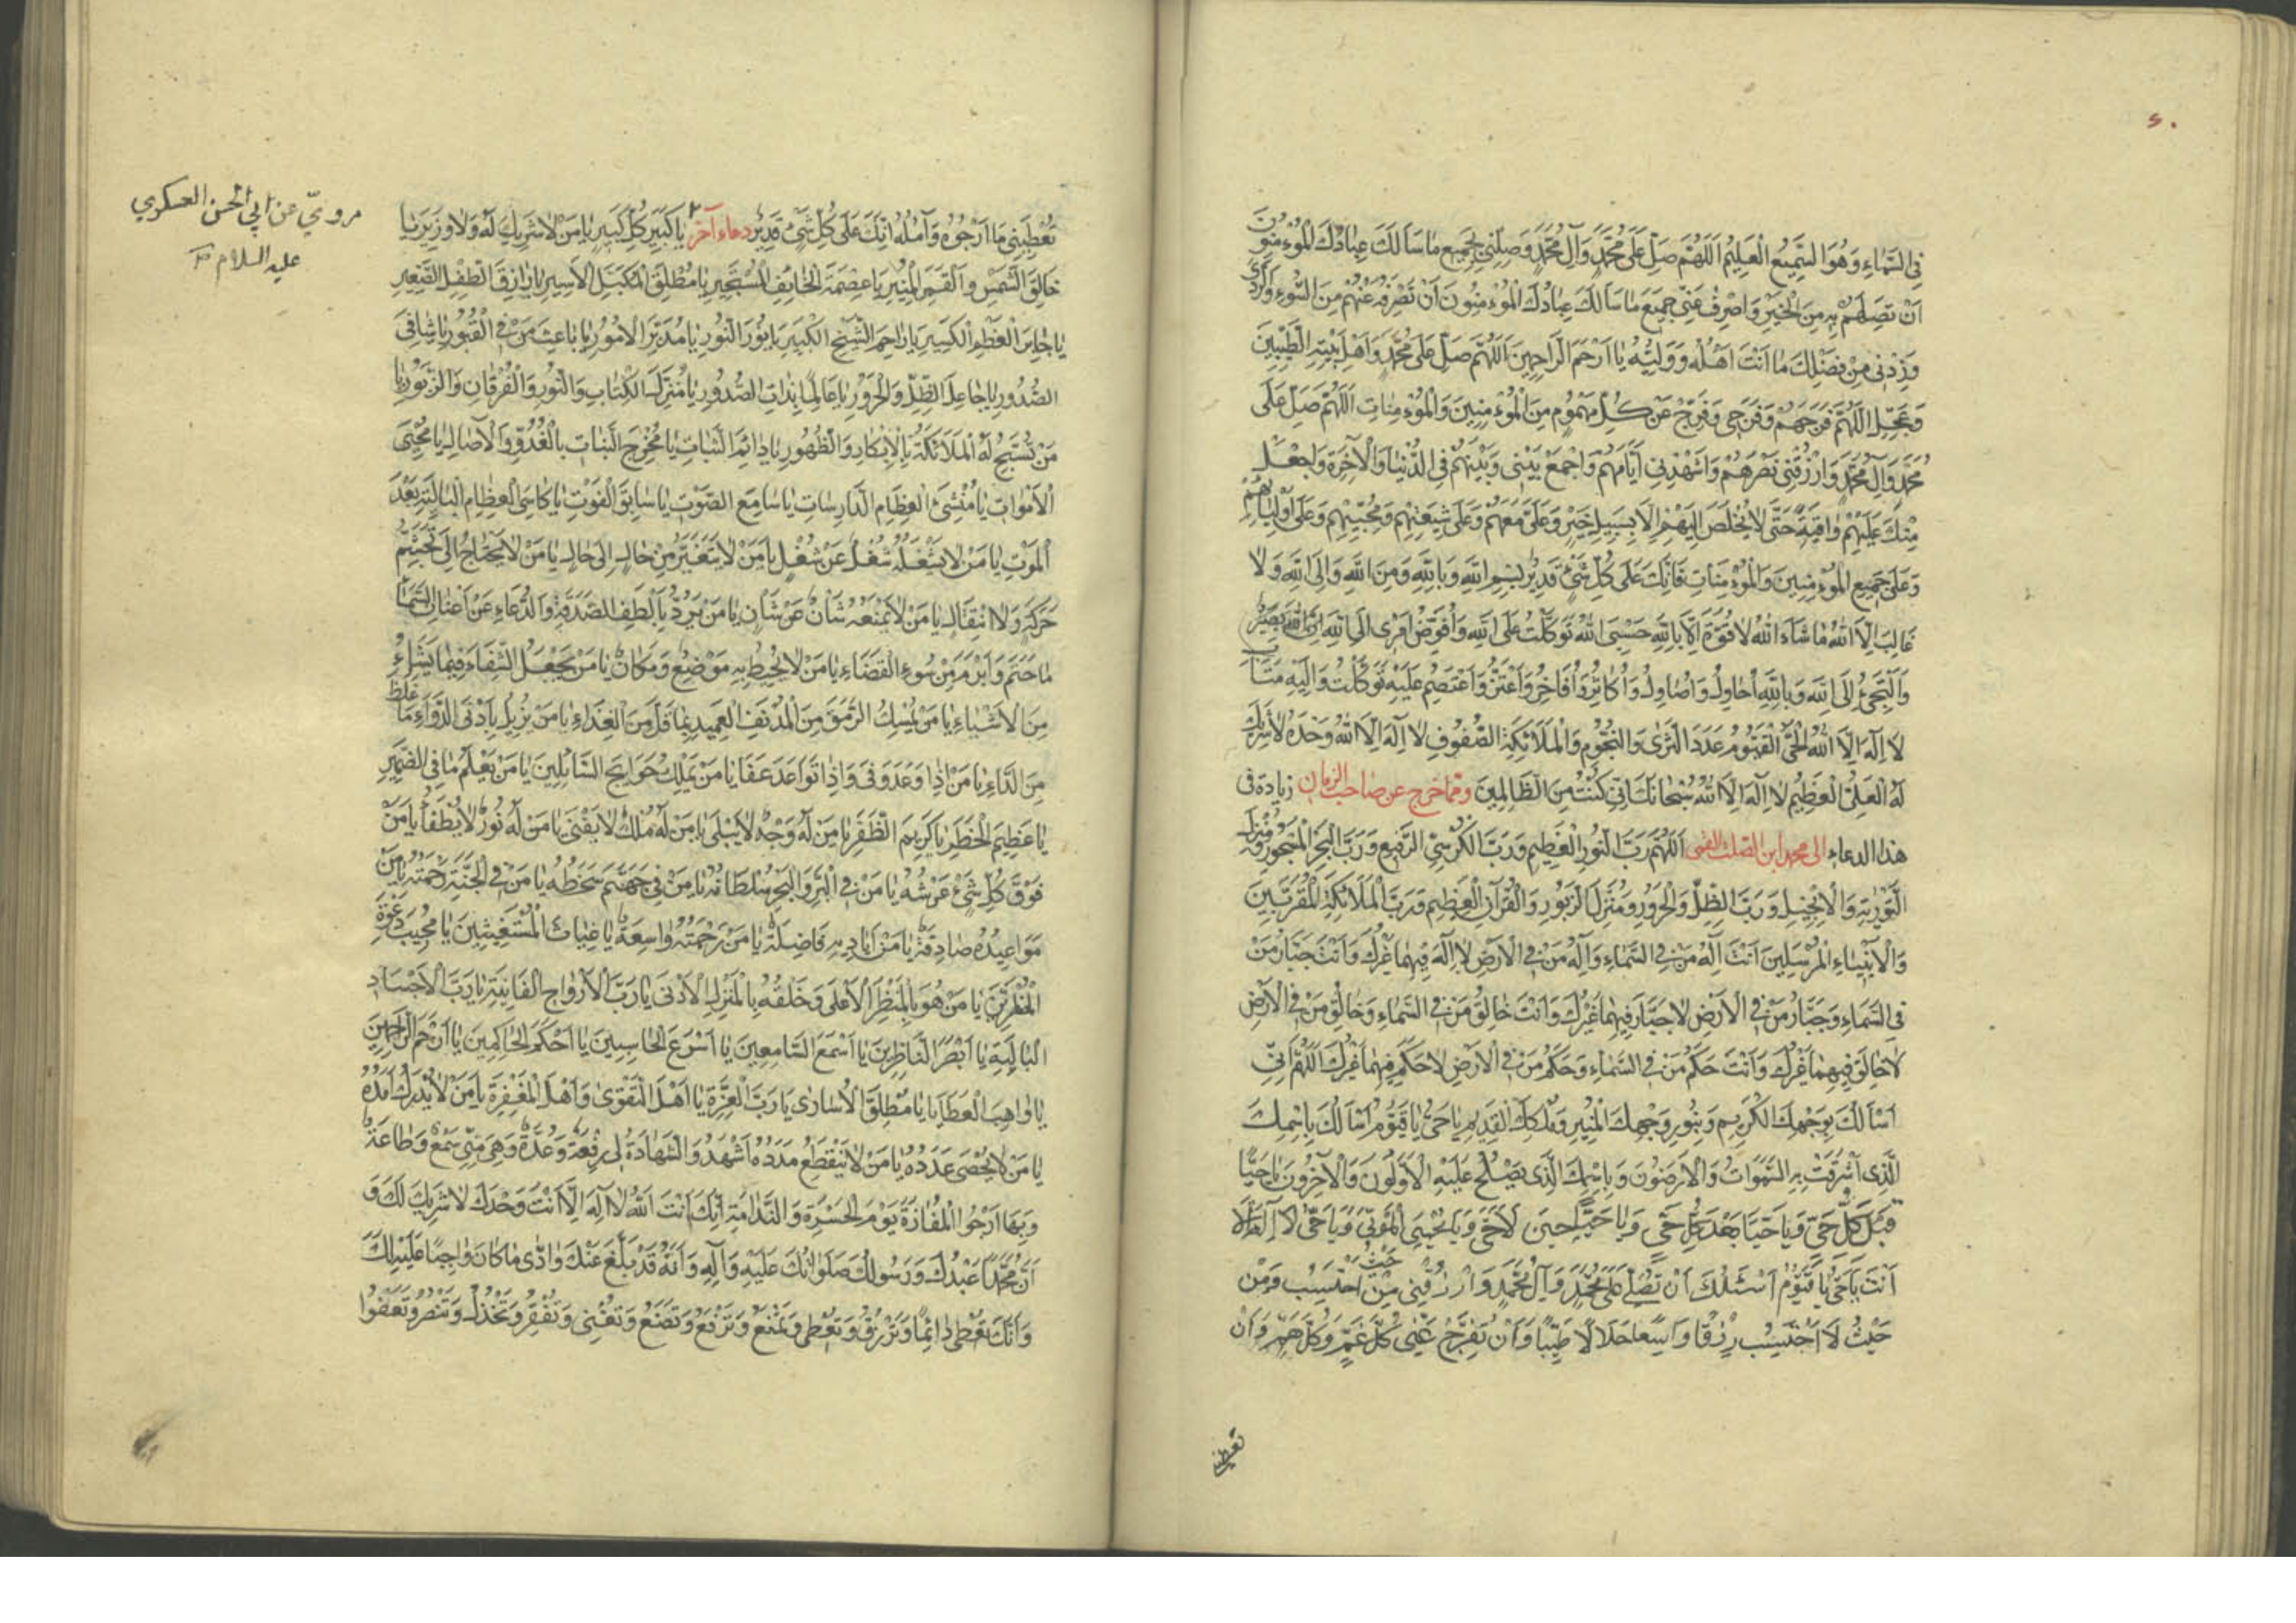 ۶۰
فِي السَّمَاءِ وَهُوَ السَّمِيعُ الْعَلِيمُ اَللّٰهُمَّ صَلِّ عَلَى مُحَمَّدٍ وَآلِ مُحَمَّدٍ وَصِلْنِي بِجَمِيعِ مَا سَأَلَكَ عِبَادُكَ الْمُؤْمِنُونَ
اَنْ تَصِلَهُمْ بِهِ مِنَ الْخَيْرِ وَاصْرِفْ عَنِّي جَمِيعَ مَا سَأَلَكَ عِبَادُكَ الْمُؤْمِنُونَ اَنْ تَصْرِفَهُ عَنْهُمْ مِنَ السُّوءِ وَالرَّدَى
وَزِدْنِي مِنْ فَضْلِكَ مَا اَنْتَ اَهْلُهُ وَوَلِيُّهُ يَا اَرْحَمَ الرَّاحِمِينَ اَللّٰهُمَّ صَلِّ عَلَى مُحَمَّدٍ وَاَهْلِ بَيْتِهِ الطَّيِّبِينَ
وَعَجِّلِ اللّٰهُمَّ فَرَجَهُمْ وَفَرَجِي وَفَرِّجْ عَنْ كُلِّ مَهْمُومٍ مِنَ الْمُؤْمِنِينَ وَالْمُؤْمِنَاتِ اَللّٰهُمَّ صَلِّ عَلَى
مُحَمَّدٍ وَآلِ مُحَمَّدٍ وَارْزُقْنِي نَصْرَهُمْ وَاَشْهِدْنِي اَيَّامَهُمْ وَاجْمَعْ بَيْنِي وَبَيْنَهُمْ فِي الدُّنْيَا وَالْآخِرَةِ وَاجْعَلْ
مِنْكَ عَلَيْهِمْ وَاقِيَةً حَتَّى لَا يُخْلَصَ اِلَيْهِمْ اِلَّا بِسَبِيلِ خَيْرٍ وَعَلَيَّ مَعَهُمْ وَعَلَى شِيعَتِهِمْ وَمُحِبِّيهِمْ وَعَلَى اَوْلِيَائِهِمْ
وَعَلَى جَمِيعِ الْمُؤْمِنِينَ وَالْمُؤْمِنَاتِ فَاِنَّكَ عَلَى كُلِّ شَيْءٍ قَدِيرٌ بِسْمِ اللهِ وَبِاللهِ وَمِنَ اللهِ وَاِلَى اللهِ وَلَا
غَالِبَ اِلَّا اللهُ مَا شَاءَ اللهُ لَا قُوَّةَ اِلَّا بِاللهِ حَسْبِيَ اللهُ تَوَكَّلْتُ عَلَى اللهِ وَاُفَوِّضُ اَمْرِي اِلَى اللهِ اِنَّ اللهَ بَصِيرٌ
وَاَلْتَجِئُ اِلَى اللهِ وَبِاللهِ اُحَاوِلُ وَاُصَاوِلُ وَاُكَاثِرُ وَاُفَاخِرُ وَاَعْتَزُّ وَاَعْتَصِمُ عَلَيْهِ تَوَكَّلْتُ وَاِلَيْهِ مَتَابِ
لَا اِلٰهَ اِلَّا اللهُ الْحَيُّ الْقَيُّومُ عَدَدَ الثَّرَى وَالنُّجُومِ وَالْمَلَائِكَةِ الصُّفُوفِ لَا اِلٰهَ اِلَّا اللهُ وَحْدَهُ لَا شَرِيكَ
لَهُ الْعَلِيُّ الْعَظِيمُ لَا اِلٰهَ اِلَّا اللهُ سُبْحَانَكَ اِنِّي كُنْتُ مِنَ الظَّالِمِينَ ومما خرج عن صاحب الزمان زيادة في
هذا الدعاء الى محمد ابن الصلت القمي اَللّٰهُمَّ رَبَّ النُّورِ الْعَظِيمِ وَرَبَّ الْكُرْسِيِّ الرَّفِيعِ وَرَبَّ الْبَحْرِ الْمَسْجُورِ وَمُنْزِلَ
التَّوْرٰيةِ وَالْاِنْجِيلِ وَرَبَّ الظِّلِّ وَالْحَرُورِ وَمُنْزِلَ الزَّبُورِ وَالْقُرْآنِ الْعَظِيمِ وَرَبَّ الْمَلَائِكَةِ الْمُقَرَّبِينَ
وَالْاَنْبِيَاءِ الْمُرْسَلِينَ اَنْتَ اِلٰهُ مَنْ فِي السَّمَاءِ وَاِلٰهُ مَنْ فِي الْاَرْضِ لَا اِلٰهَ فِيهِمَا غَيْرُكَ وَاَنْتَ جَبَّارُ مَنْ
فِي السَّمَاءِ وَجَبَّارُ مَنْ فِي الْاَرْضِ لَا جَبَّارَ فِيهِمَا غَيْرُكَ وَاَنْتَ خَالِقُ مَنْ فِي السَّمَاءِ وَخَالِقُ مَنْ فِي الْاَرْضِ
لَا خَالِقَ فِيهِمَا غَيْرُكَ وَاَنْتَ حَكَمُ مَنْ فِي السَّمَاءِ وَحَكَمُ مَنْ فِي الْاَرْضِ لَا حَكَمَ فِيهِمَا غَيْرُكَ اَللّٰهُمَّ اِنِّي
اَسْاَلُكَ بِوَجْهِكَ الْكَرِيمِ وَبِنُورِ وَجْهِكَ الْمُنِيرِ وَمُلْكِكَ الْقَدِيمِ يَا حَيُّ يَا قَيُّومُ اَسْاَلُكَ بِاسْمِكَ
الَّذِي اَشْرَقَتْ بِهِ السَّمٰوَاتُ وَالْاَرَضُونَ وَبِاسْمِكَ الَّذِي يَصْلُحُ عَلَيْهِ الْاَوَّلُونَ وَالْآخِرُونَ يَا حَيًّا
قَبْلَ كُلِّ حَيٍّ وَيَا حَيًّا بَعْدَ كُلِّ حَيٍّ وَيَا حَيًّا حِينَ لَا حَيَّ وَيَا مُحْيِيَ الْمَوْتَى وَيَا حَيُّ لَا اِلٰهَ اِلَّا
اَنْتَ يَا حَيُّ يَا قَيُّومُ اَسْئَلُكَ اَنْ تُصَلِّيَ عَلَى مُحَمَّدٍ وَآلِ مُحَمَّدٍ وَارْزُقْنِي مِنْ حَيْثُ اَحْتَسِبُ وَمِنْ
حَيْثُ لَا اَحْتَسِبُ رِزْقًا وَاسِعًا حَلَالًا طَيِّبًا وَاَنْ تُفَرِّجَ عَنِّي كُلَّ غَمٍّ وَكُلَّ هَمٍّ وَاَنْ
تعطيني
تُعْطِيَنِي مَا اَرْجُوهُ وَآمُلُهُ اِنَّكَ عَلَى كُلِّ شَيْءٍ قَدِيرٌ دعاء آخر يَا كَبِيرَ كُلِّ كَبِيرٍ يَا مَنْ لَا شَرِيكَ لَهُ وَلَا وَزِيرَ يَا
خَالِقَ الشَّمْسِ وَالْقَمَرِ الْمُنِيرِ يَا عِصْمَةَ الْخَائِفِ الْمُسْتَجِيرِ يَا مُطْلِقَ الْمُكَبَّلِ الْاَسِيرِ يَا رَازِقَ الطِّفْلِ الصَّغِيرِ
يَا جَابِرَ الْعَظْمِ الْكَسِيرِ يَا رَاحِمَ الشَّيْخِ الْكَبِيرِ يَا نُورَ النُّورِ يَا مُدَبِّرَ الْاُمُورِ يَا بَاعِثَ مَنْ فِي الْقُبُورِ يَا شَافِيَ
الصُّدُورِ يَا جَاعِلَ الظِّلِّ وَالْحَرُورِ يَا عَالِمًا بِذَاتِ الصُّدُورِ يَا مُنْزِلَ الْكِتَابِ وَالنُّورِ وَالْفُرْقَانِ وَالزَّبُورِ يَا
مَنْ تُسَبِّحُ لَهُ الْمَلَائِكَةُ بِالْاِبْكَارِ وَالظُّهُورِ يَا دَائِمَ الثَّبَاتِ يَا مُخْرِجَ النَّبَاتِ بِالْغُدُوِّ وَالْآصَالِ يَا مُحْيِيَ
الْاَمْوَاتِ يَا مُنْشِئَ الْعِظَامِ الدَّارِسَاتِ يَا سَامِعَ الصَّوْتِ يَا سَابِقَ الْفَوْتِ يَا كَاسِيَ الْعِظَامِ الْبَالِيَةِ بَعْدَ
الْمَوْتِ يَا مَنْ لَا يَشْغَلُهُ شُغْلٌ عَنْ شُغْلٍ يَا مَنْ لَا يَتَغَيَّرُ مِنْ حَالٍ اِلَى حَالٍ يَا مَنْ لَا يَحْتَاجُ اِلَى تَجَشُّمِ
حَرَكَةٍ وَلَا انْتِقَالٍ يَا مَنْ لَا يَمْنَعُهُ شَاْنٌ عَنْ شَاْنٍ يَا مَنْ يَرُدُّ بِاَلْطَفِ الصَّدَقَةِ وَالدُّعَاءِ عَنْ اَعْنَانِ السَّمَاءِ
مَا حَتَمَ وَاَبْرَمَ مِنْ سُوءِ الْقَضَاءِ يَا مَنْ لَا يُحِيطُ بِهِ مَوْضِعٌ وَمَكَانٌ يَا مَنْ يَجْعَلُ الشِّفَاءَ فِيمَا يَشَاءُ
مِنَ الْاَشْيَاءِ يَا مَنْ يُمْسِكُ الرَّمَقَ مِنَ الْمُدْنِفِ الْعَمِيدِ بِمَا قَلَّ مِنَ الْغِذَاءِ يَا مَنْ يُزِيلُ بِاَدْنَى الدَّوَاءِ مَا غَلُظَ
مِنَ الدَّاءِ يَا مَنْ اِذَا وَعَدَ وَفَى وَاِذَا تَوَاعَدَ عَفَا يَا مَنْ يَمْلِكُ حَوَائِجَ السَّائِلِينَ يَا مَنْ يَعْلَمُ مَا فِي الضَّمِيرِ
يَا عَظِيمَ الْخَطَرِ يَا كَرِيمَ الظَّفَرِ يَا مَنْ لَهُ وَجْهٌ لَا يَبْلَى يَا مَنْ لَهُ مُلْكٌ لَا يَفْنَى يَا مَنْ لَهُ نُورٌ لَا يُطْفَأُ يَا مَنْ
فَوْقَ كُلِّ شَيْءٍ عَرْشُهُ يَا مَنْ فِي الْبَرِّ وَالْبَحْرِ سُلْطَانُهُ يَا مَنْ فِي جَهَنَّمَ سَخَطُهُ يَا مَنْ فِي الْجَنَّةِ رَحْمَتُهُ يَا مَنْ
مَوَاعِيدُهُ صَادِقَةٌ يَا مَنْ اَيَادِيهِ فَاضِلَةٌ يَا مَنْ رَحْمَتُهُ وَاسِعَةٌ يَا غِيَاثَ الْمُسْتَغِيثِينَ يَا مُجِيبَ دَعْوَةِ
الْمُضْطَرِّينَ يَا مَنْ هُوَ بِالْمَنْظَرِ الْاَعْلَى وَخَلْقُهُ بِالْمَنْزِلِ الْاَدْنَى يَا رَبَّ الْاَرْوَاحِ الْفَانِيَةِ يَا رَبَّ الْاَجْسَادِ
الْبَالِيَةِ يَا اَبْصَرَ النَّاظِرِينَ يَا اَسْمَعَ السَّامِعِينَ يَا اَسْرَعَ الْحَاسِبِينَ يَا اَحْكَمَ الْحَاكِمِينَ يَا اَرْحَمَ الرَّاحِمِينَ
يَا وَاهِبَ الْعَطَايَا يَا مُطْلِقَ الْاُسَارَى يَا رَبَّ الْعِزَّةِ يَا اَهْلَ التَّقْوَى وَاَهْلَ الْمَغْفِرَةِ يَا مَنْ لَا يُدْرَكُ اَمَدُهُ
يَا مَنْ لَا يُحْصَى عَدَدُهُ يَا مَنْ لَا يَنْقَطِعُ مَدَدُهُ اَشْهَدُ وَالشَّهَادَةُ لِي رِفْعَةٌ وَعُدَّةٌ وَهِيَ مِنِّي سَمْعٌ وَطَاعَةٌ
وَبِهَا اَرْجُو الْمَفَازَةَ يَوْمَ الْحَسْرَةِ وَالنَّدَامَةِ اِنَّكَ اَنْتَ اللهُ لَا اِلٰهَ اِلَّا اَنْتَ وَحْدَكَ لَا شَرِيكَ لَكَ وَ
اَنَّ مُحَمَّدًا عَبْدُكَ وَرَسُولُكَ صَلَوَاتُكَ عَلَيْهِ وَآلِهِ وَاَنَّهُ قَدْ بَلَّغَ عَنْكَ وَاَدَّى مَا كَانَ وَاجِبًا عَلَيْهِ لَكَ
وَاَنَّكَ تُعْطِي دَائِمًا وَتَرْزُقُ وَتُعْطِي وَتَمْنَعُ وَتَرْفَعُ وَتَضَعُ وَتُغْنِي وَتُفْقِرُ وَتَخْذُلُ وَتَنْصُرُ وَتَعْفُو
مرويّ عن ابي الحسن العسكري
عليه السلام